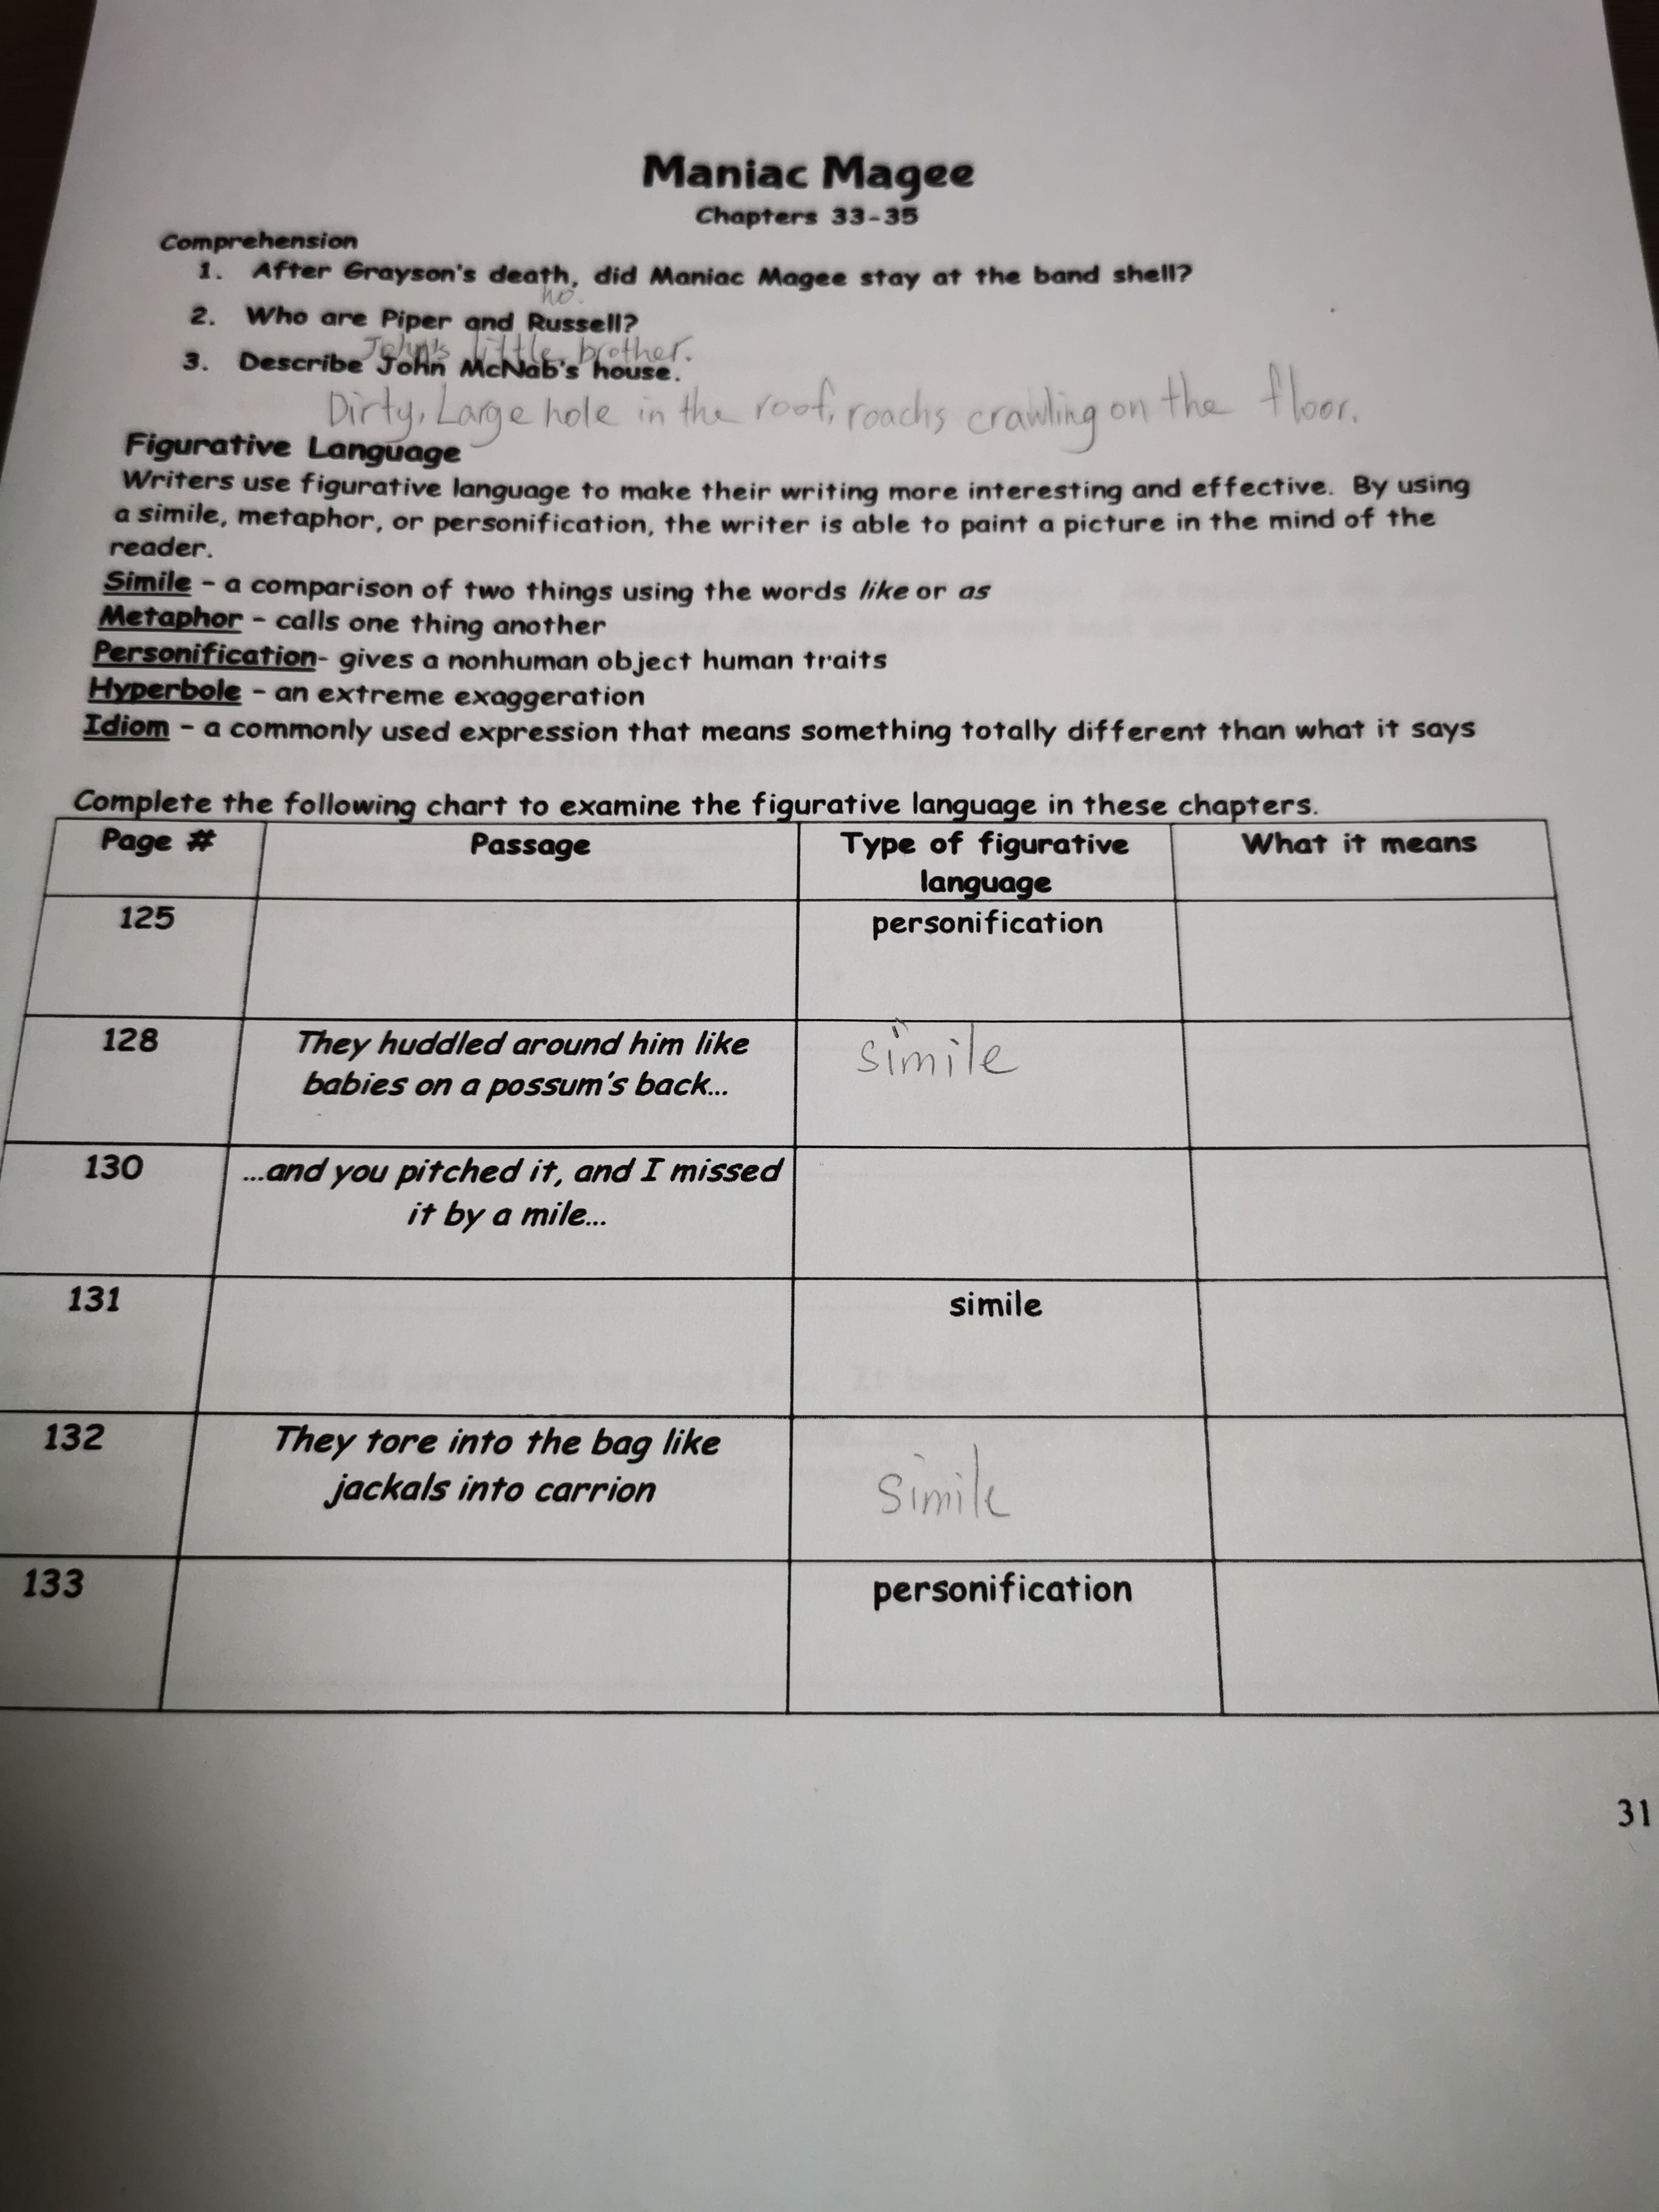 Maniac Magee
Chapters 33-35
Comprehension
1. After Grayson's death, did Maniac Magee stay at the band shell?
no.
2. Who are Piper and Russell?
John's little brother.
3. Describe John McNab's house.
Dirty, Large hole in the roof, roachs crawling on the floor.
Figurative Language
Writers use figurative language to make their writing more interesting and effective. By using
a simile, metaphor, or personification, the writer is able to paint a picture in the mind of the
reader.
Simile - a comparison of two things using the words like or as
Metaphor - calls one thing another
Personification- gives a nonhuman object human traits
Hyperbole - an extreme exaggeration
Idiom - a commonly used expression that means something totally different than what it says
Complete the following chart to examine the figurative language in these chapters.
Page # Passage Type of figurative What it means
language
125 personification
128 They huddled around him like simile
babies on a possum's back...
130 ...and you pitched it, and I missed
it by a mile...
131 simile
132 They tore into the bag like
jackals into carrion simile
133 personification
31